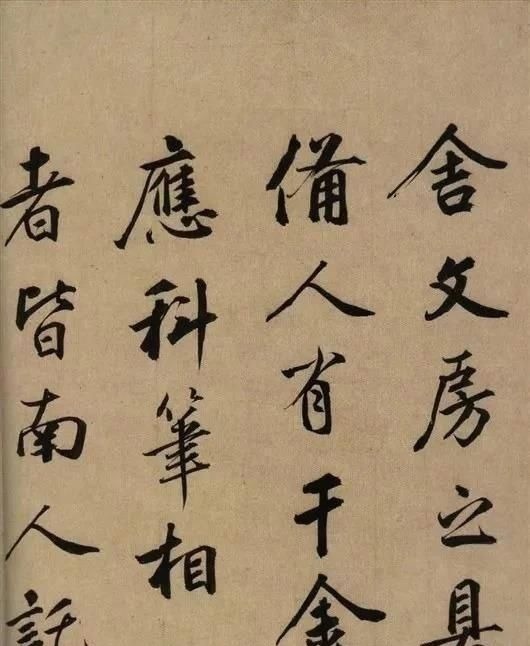 舍文房之具
備人有千金
應科筆相
者皆南人託